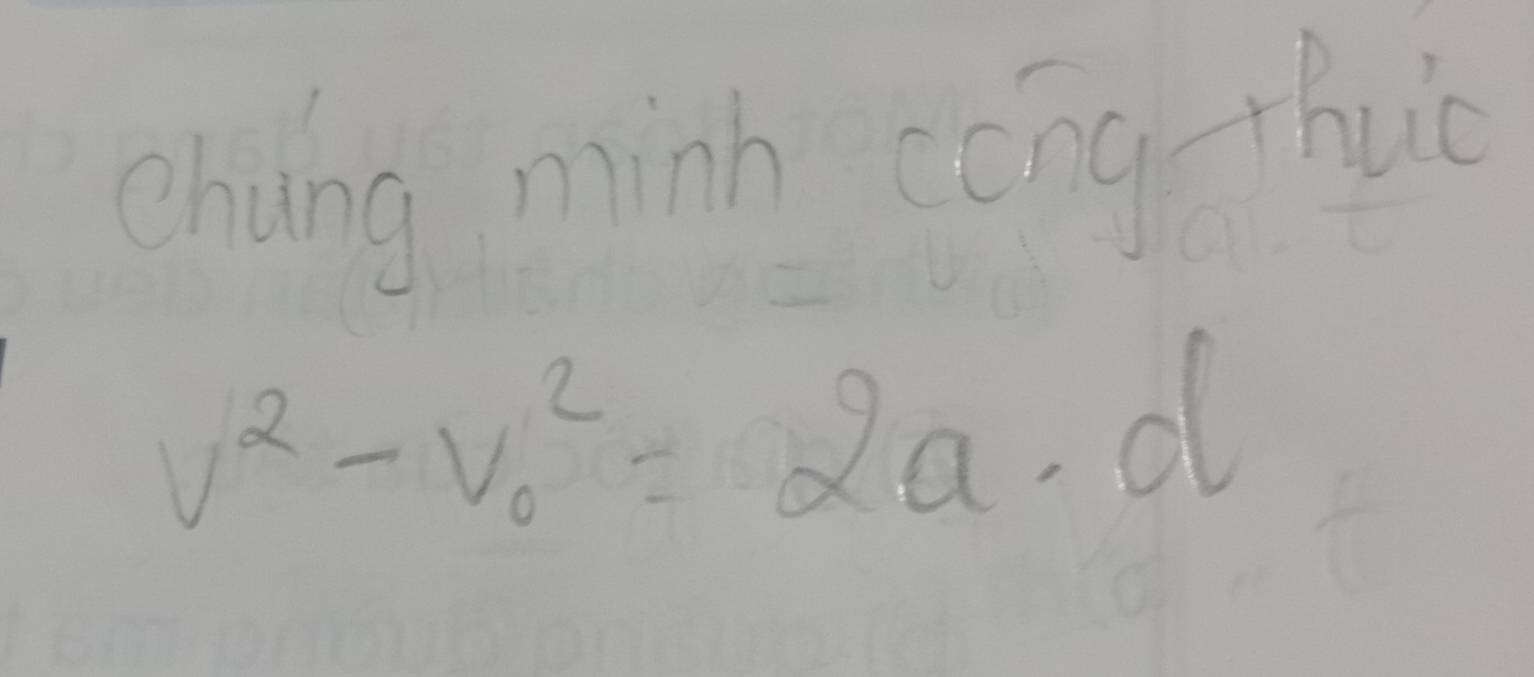 Chứng minh công thức
v² - v₀² = 2a . d